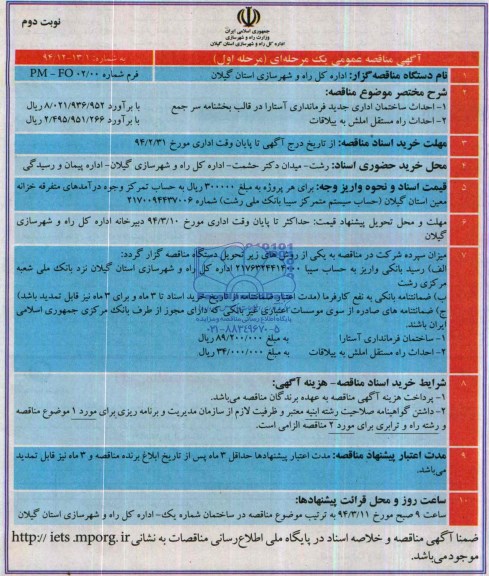 نوبت دوم
جمهوری اسلامی ایران
وزارت راه و شهرسازی
اداره کل راه و شهرسازی استان گیلان
آگهی مناقصه عمومی یک مرحله‌ای (مرحله اول)
به شماره: ۱-۱۳-۹۴۰۱۲
۱ نام دستگاه مناقصه‌گزار: اداره کل راه و شهرسازی استان گیلان
فرم شماره PM - FO ۰۲/۰۰
۲ شرح مختصر موضوع مناقصه:
۱- احداث ساختمان اداری جدید فرمانداری آستارا در قالب بخشنامه سر جمع با برآورد ۸/۰۲۱/۹۳۶/۹۵۲ ریال
۲- احداث راه مستقل املش به ییلاقات با برآورد ۲/۴۹۵/۹۵۱/۲۶۶ ریال
۳ مهلت خرید اسناد مناقصه: از تاریخ درج آگهی تا پایان وقت اداری مورخ ۹۴/۲/۳۱
۴ محل خرید حضوری اسناد: رشت- میدان دکتر حشمت- اداره کل راه و شهرسازی گیلان- اداره پیمان و رسیدگی
۵ قیمت اسناد و نحوه واریز وجه: برای هر پروژه به مبلغ ۳۰۰۰۰۰ ریال به حساب تمرکز وجوه درآمدهای متفرقه خزانه
معین استان گیلان (حساب سیستم متمرکز سیبا بانک ملی رشت) شماره ۲۱۷۰۰۹۴۴۳۷۰۰۶
۶ مهلت و محل تحویل پیشنهاد قیمت: حداکثر تا پایان وقت اداری مورخ ۹۴/۳/۱۰ دبیرخانه اداره کل راه و شهرسازی
گیلان
۷ میزان سپرده شرکت در مناقصه به یکی از روش‌های زیر تحویل دستگاه مناقصه گزار گردد:
الف) رسید بانکی واریز به حساب سیبا اداره کل راه و شهرسازی استان گیلان نزد بانک ملی شعبه
مرکزی رشت
ب) ضمانتنامه بانکی به نفع کارفرما (مدت اعتبار ضمانتنامه از تاریخ خرید اسناد تا ۳ ماه و برای ۳ ماه نیز قابل تمدید باشد)
ج) ضمانتنامه های صادره از سوی موسسات اعتباری غیر بانکی که دارای مجوز از طرف بانک مرکزی جمهوری اسلامی
ایران باشند.
۱- ساختمان فرمانداری آستارا به مبلغ ۸۹/۲۰۰/۰۰۰ ریال
۲- احداث راه مستقل املش به ییلاقات به مبلغ ۳۴/۰۰۰/۰۰۰ ریال
پایگاه اطلاع رسانی مناقصه و مزایده
۰۲۱-۸۸۳۴۹۶۷۰-۵
۸ شرایط خرید اسناد مناقصه- هزینه آگهی:
۱- پرداخت هزینه آگهی مناقصه به عهده برندگان مناقصه می‌باشد.
۲- داشتن گواهینامه صلاحیت رشته ابنیه معتبر و ظرفیت لازم از سازمان مدیریت و برنامه ریزی برای مورد ۱ موضوع مناقصه
و رشته راه و ترابری برای مورد ۲ مناقصه الزامی است.
۹ مدت اعتبار پیشنهاد مناقصه: مدت اعتبار پیشنهادها حداقل ۳ ماه پس از تاریخ ابلاغ برنده مناقصه و ۳ ماه نیز قابل تمدید
می‌باشد.
۱۰ ساعت روز و محل قرائت پیشنهادها:
ساعت ۹ صبح مورخ ۹۴/۳/۱۱ به ترتیب موضوع مناقصه در ساختمان شماره یک- اداره کل راه و شهرسازی استان گیلان
ضمنا آگهی مناقصه و خلاصه اسناد در پایگاه ملی اطلاع‌رسانی مناقصات به نشانی http:// iets .mporg. ir
موجود می‌باشد.